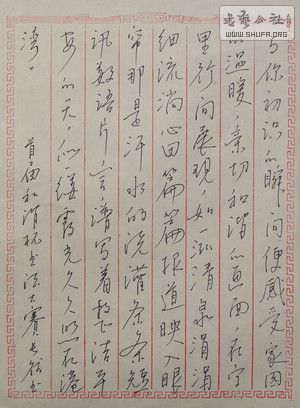 书艺公社
WWW.SHUFA.ORG
与你初识的瞬间便感受家园
的温暖，亲切和谐的画面，在字
里行间展现，如一泓清泉涓涓
细流淌心田篇篇报道映入眼
帘那是汗水的浇灌条条短
讯数语片言谱写着平
安的天，似缕霞光久久照在港
湾。
首届和谐杯书法大赛书